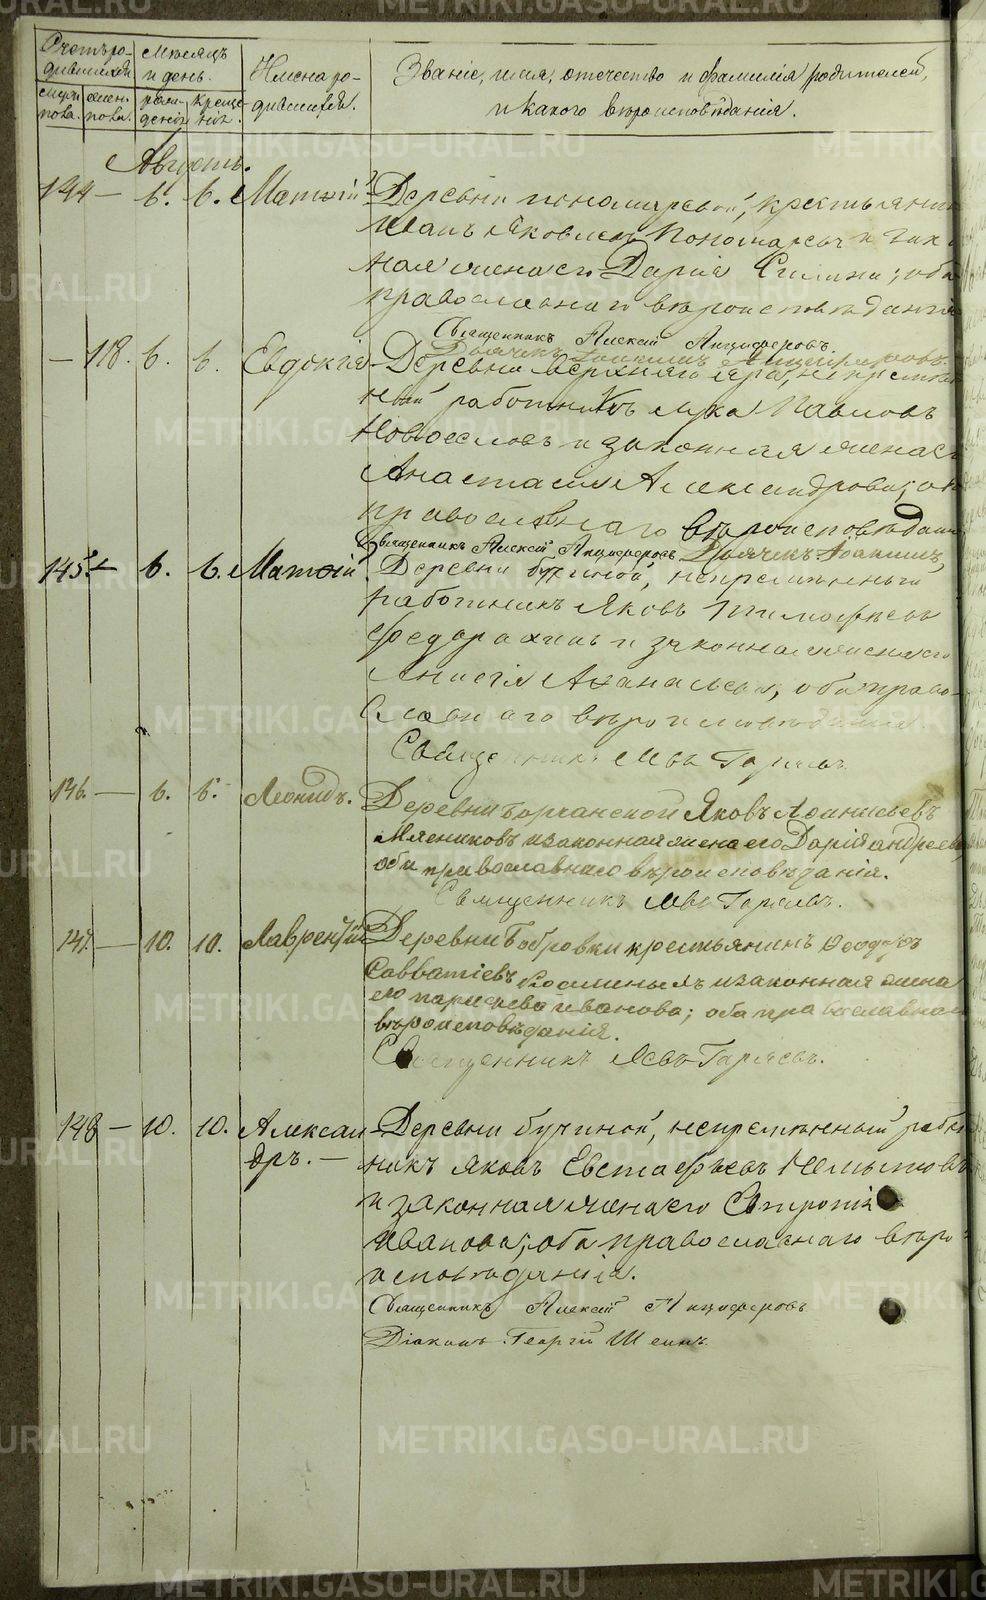 Счетъ родившихся
Мѣсяцъ и день.
Имена родившихся.
Званіе, имя, отчество и фамилія родителей,
и какого вѣроисповѣданія.
мужеска пола.
женска пола.
рожденія
крещенія.
Августъ.
144 — 6. 6. Матѳій Деревни Пономаревой, крестьянинъ
Иванъ Яковлевъ Пономаревъ и закон
ная жена его Дарія; оба
православнаго вѣроисповѣданія
Священникъ Алексій Анциферовъ.
Дьячекъ Іоакимъ
— 118. 6. 6. Евдокія Деревни Верхняго Яра, непремѣн
ный работникъ Лука Павловъ
Новоселовъ и законная жена его
Анастасія Александрова; оба
православнаго вѣроисповѣданія
Священникъ Алексій Анциферовъ Дьячекъ Іоакимъ
145. — 6. 6. Матѳій Деревни Бучиной, непремѣнный
работникъ Яковъ Тимофѣевъ
и законная жена его
Анисія Аѳанасьева, оба право-
славнаго вѣроисповѣданія
Священникъ Левъ Гаряевъ.
146. — 6. 6. Леонидъ. Деревни Яковъ Аѳанасьевъ
Мясниковъ и законная жена его Дарія Андреева
оба православнаго вѣроисповѣданія.
Священникъ Левъ Гаряевъ.
147. — 10. 10. Лаврентій Деревни Бобровки крестьянинъ Ѳеодоръ
Савватіевъ и законная жена
его Параскева Иванова; оба православнаго
вѣроисповѣданія.
Священникъ Левъ Гаряевъ.
148 — 10. 10. Алексан
дръ. — Деревни Бучиной, непремѣнный работ
никъ Яковъ Евстафьевъ
и законная жена его
Иванова; оба православнаго вѣро
исповѣданія.
Священникъ Алексій Анциферовъ
Діаконъ Георгій Шеинъ.
METRIKI.GASO-URAL.RU